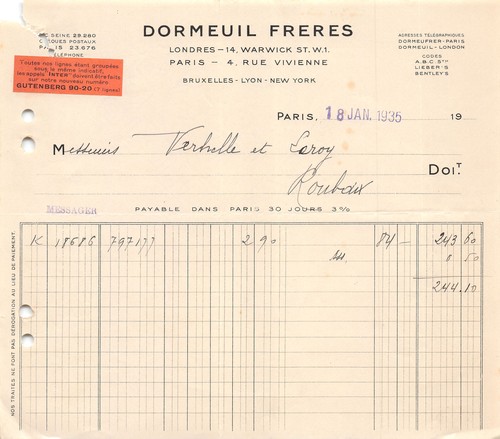 DORMEUIL FRERES
LONDRES – 14, WARWICK ST. W.1.
PARIS – 4, RUE VIVIENNE
BRUXELLES - LYON - NEW YORK
SEINE 29.280
CHEQUES POSTAUX
PARIS 23.676
TELEPHONE
Toutes nos lignes étant groupées
sous le même indicatif,
les appels "INTER" doivent être faits
sur notre nouveau numéro
GUTENBERG 90-20 (7 lignes)
ADRESSES TÉLÉGRAPHIQUES
DORMEUFRER-PARIS
DORMEUIL-LONDON
CODES
A.B.C. 5TH
LIEBER'S
BENTLEY'S
PARIS, 18 JAN. 1935 19
Messieurs Verhelle et Leroy
DOIT
Roubaix
MESSAGER
PAYABLE DANS PARIS 30 JOURS 3%
K 18686 797177 2 90 84 – 243 60
8 50
244.10
NOS TRAITES NE FONT PAS DÉROGATION AU LIEU DE PAIEMENT.